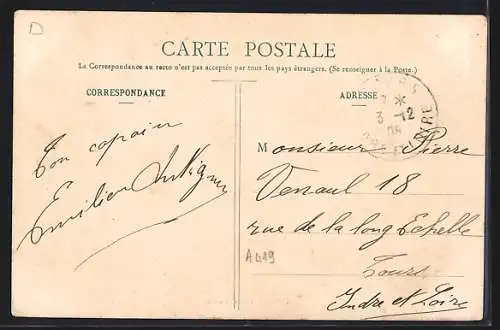 D
CARTE POSTALE
La Correspondance au recto n'est pas acceptée par tous les pays étrangers. (Se renseigner à la Poste.)
CORRESPONDANCE
ADRESSE
3 -12
Ton copain
Emilien
Monsieur Pierre
Venault 18
rue de la long Echelle
Tours
Indre et Loire
A 419